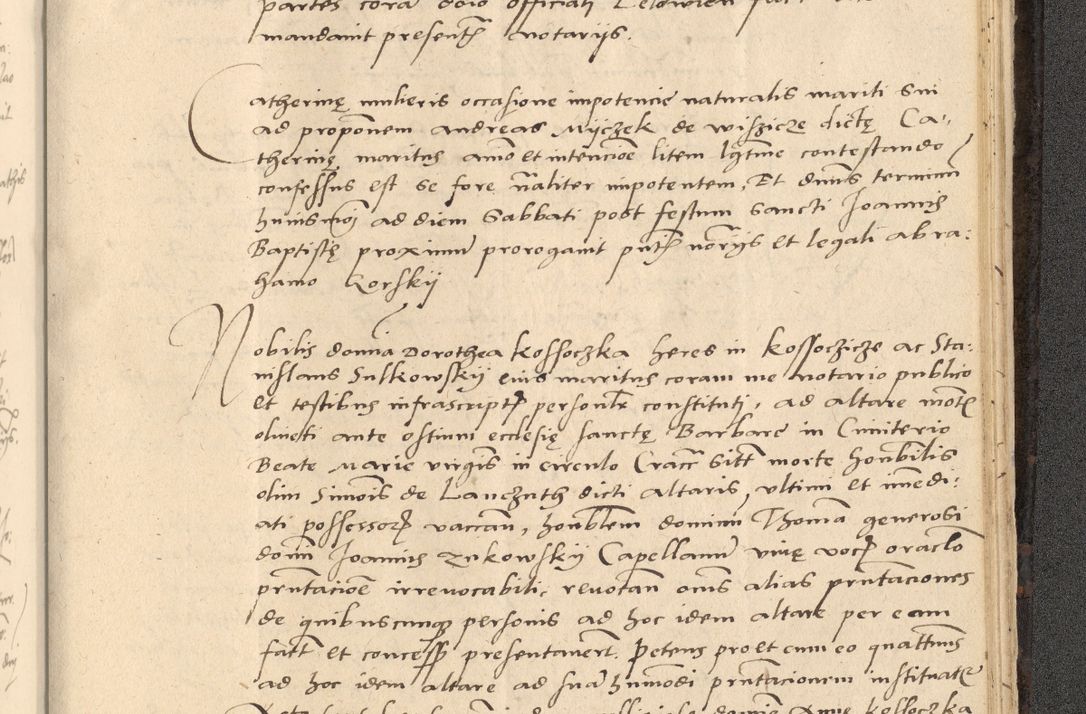 partes cora dnio officiali Lelowien
mandavit presentˀ notariis.
Catherinę mulieris occasione impotencie naturalis mariti sui
ad proponem Andreas Myczek de wisziczę dictę Ca-
therinę maritus animo et intencioe litem lgtme contestando
confessus est se fore naliter impotentem, Et dnus terminum
huiusmoi ad diem Sabbati post festum Sancti Joannis
Baptistę proximum prorogavit pntˀ noriis et legali Abra:
hamo Korskij
Nobilis domina Dorothea Kossoczka heres in Kossoczicze ac Sta:
nislaus Sulkowskij eius maritus coram me notario publico
et testibus infrascriptˀ personlr constituti, ad altare montˀ
oliveti ante ostium ecclesię sanctę Barbarę in Cimiterio
Beate Marie virgis in circulo Cracˀ sitt morte honbilis
olim Simois de Lanczuth dicti altaris, ultimi et imedi:
ati possessorˀ vaccan, honblem dominum Thoma generosi
domi Joannis Zukowskij Capellanum vivę vocˀ oraclo
prntacioe irrevocabili, revocan omes alias prntaciones
de quibuscunqʒ personis ad hoc idem altare per eam
fatt et concessˀ presentaverˀ. Petens pro et cum eo quattenus
ad hoc idem altare ad sua humodi prntacionem instituatˀ